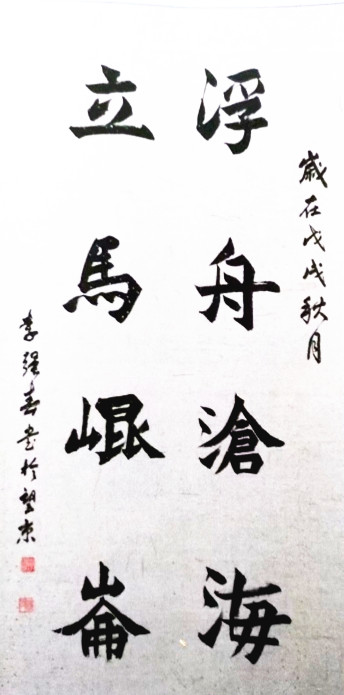 歲在戊戌秋月
浮舟滄海
立馬崐崙
李强春书於望京